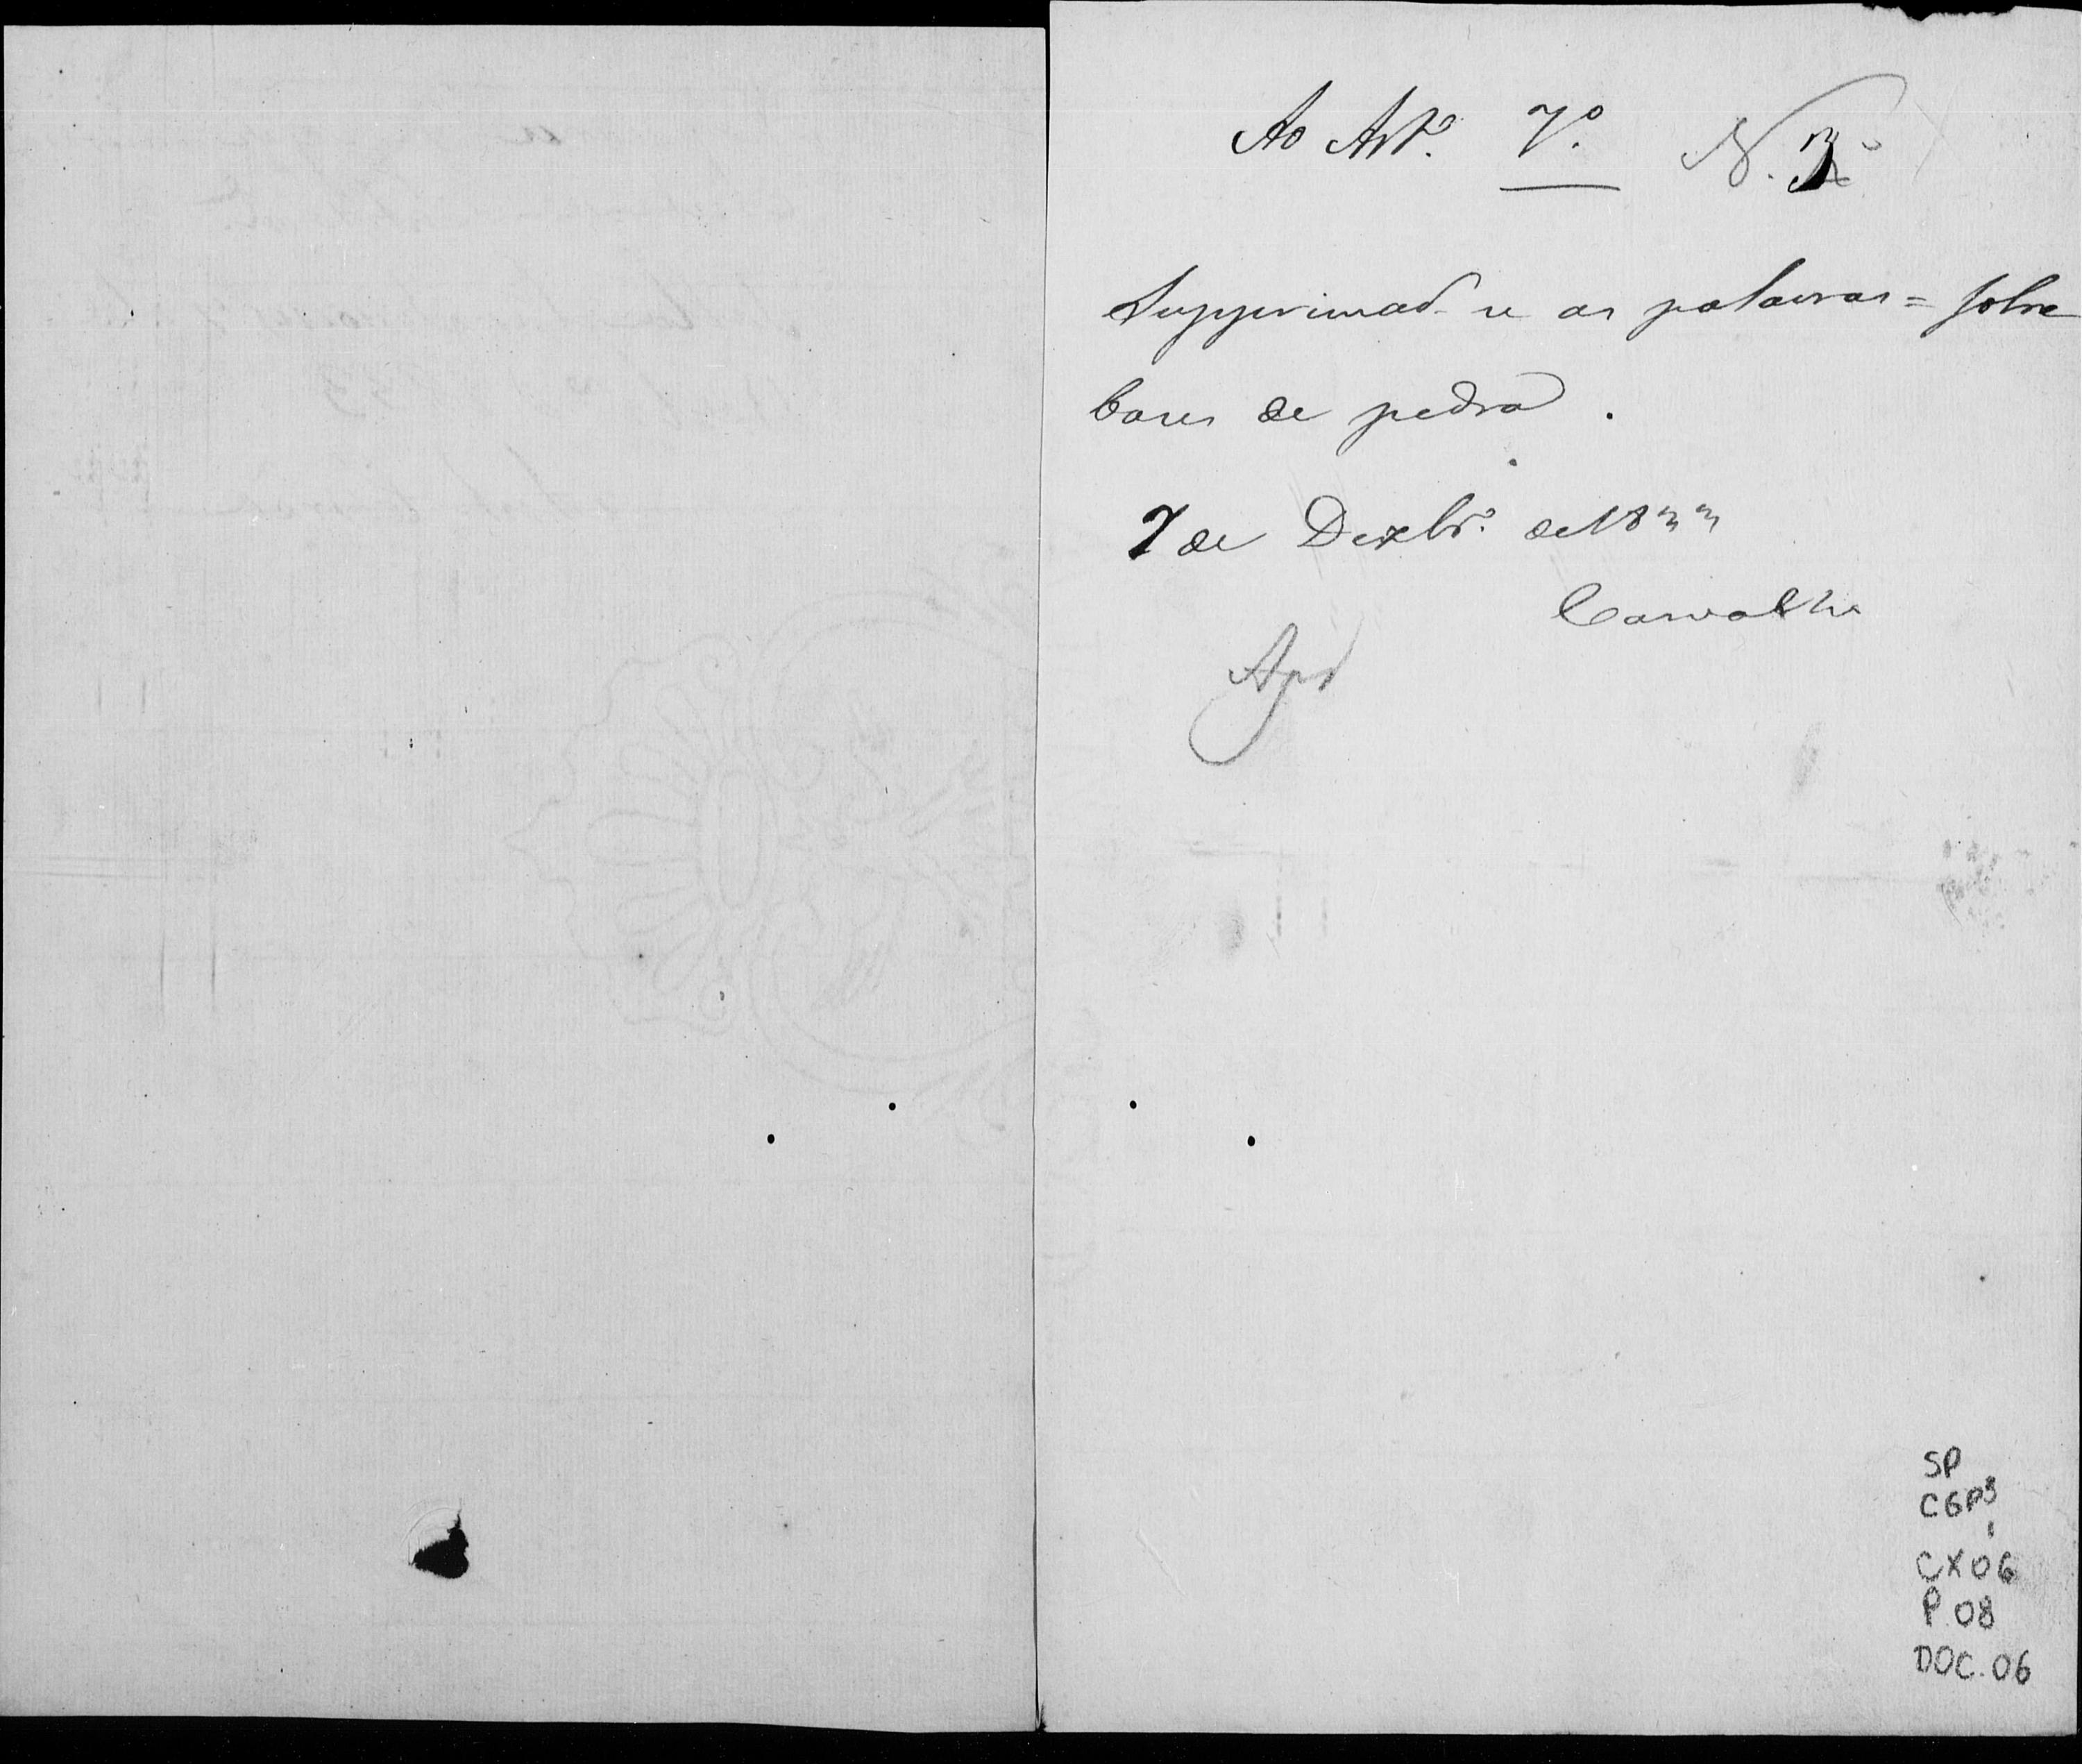 Ao Art.º 7.º N. 3
Supprimad-se as palavras = sobre
bases de pedra.
7 de Dezbr.º de 1833
Carvalho
Apr
SP
CGP3
CX06
P. 08
DOC. 06